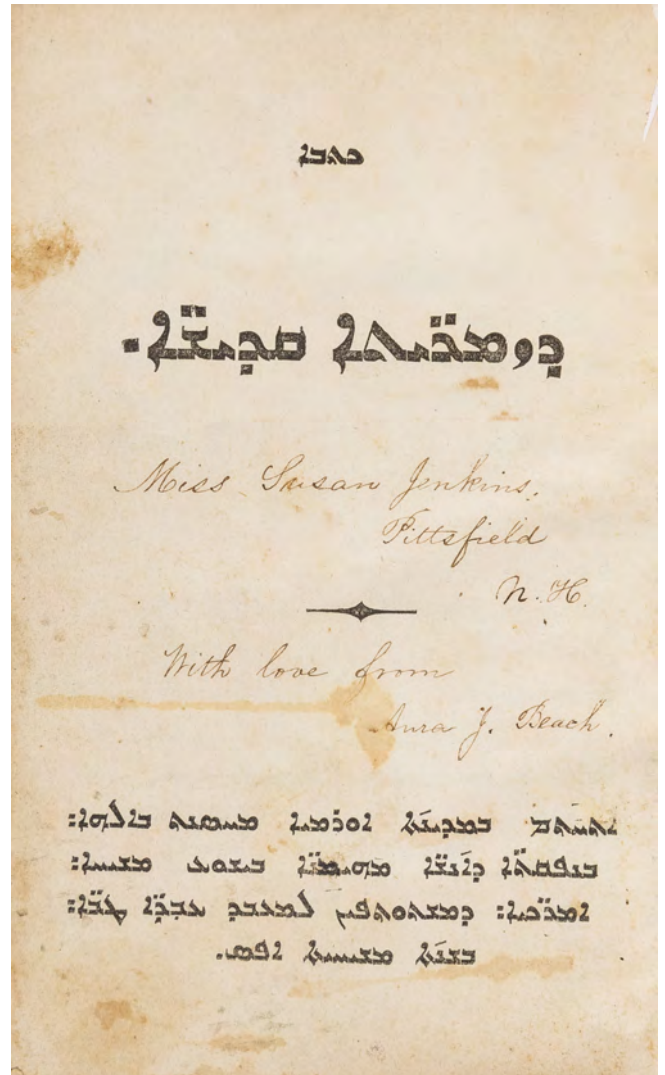 ܟܬܒܐ
ܕܙܡܪ̈ܝܬܐ ܩܕܝܫ̈ܐ.
Miss Susan Jenkins,
Pittsfield
N. H.
With love from
Aura J. Beach.
ܐܬܚܬܡ ܒܡܕܝܢ݇ܬܐ ܐܘܪܡܝܐ ܡܚܣܢܬ ܒܐܠܗܐ:
ܒܢܦܩܬ̈ܐ ܕܐ݇ܢܫ̈ܐ ܡܗܝܡܢ̈ܐ ܒܝܫܘܥ ܡܫܝܚܐ:
ܐܡܪ̈ܟܝܐ: ܕܡܫܬܘܬܦܝܢ ܠܡܥܒܕ ܥܒܕ̈ܐ ܛܒ̈ܐ:
ܒܫܢ݇ܬܐ ܡܫܝܚܝܬܐ ܐܦܣ.